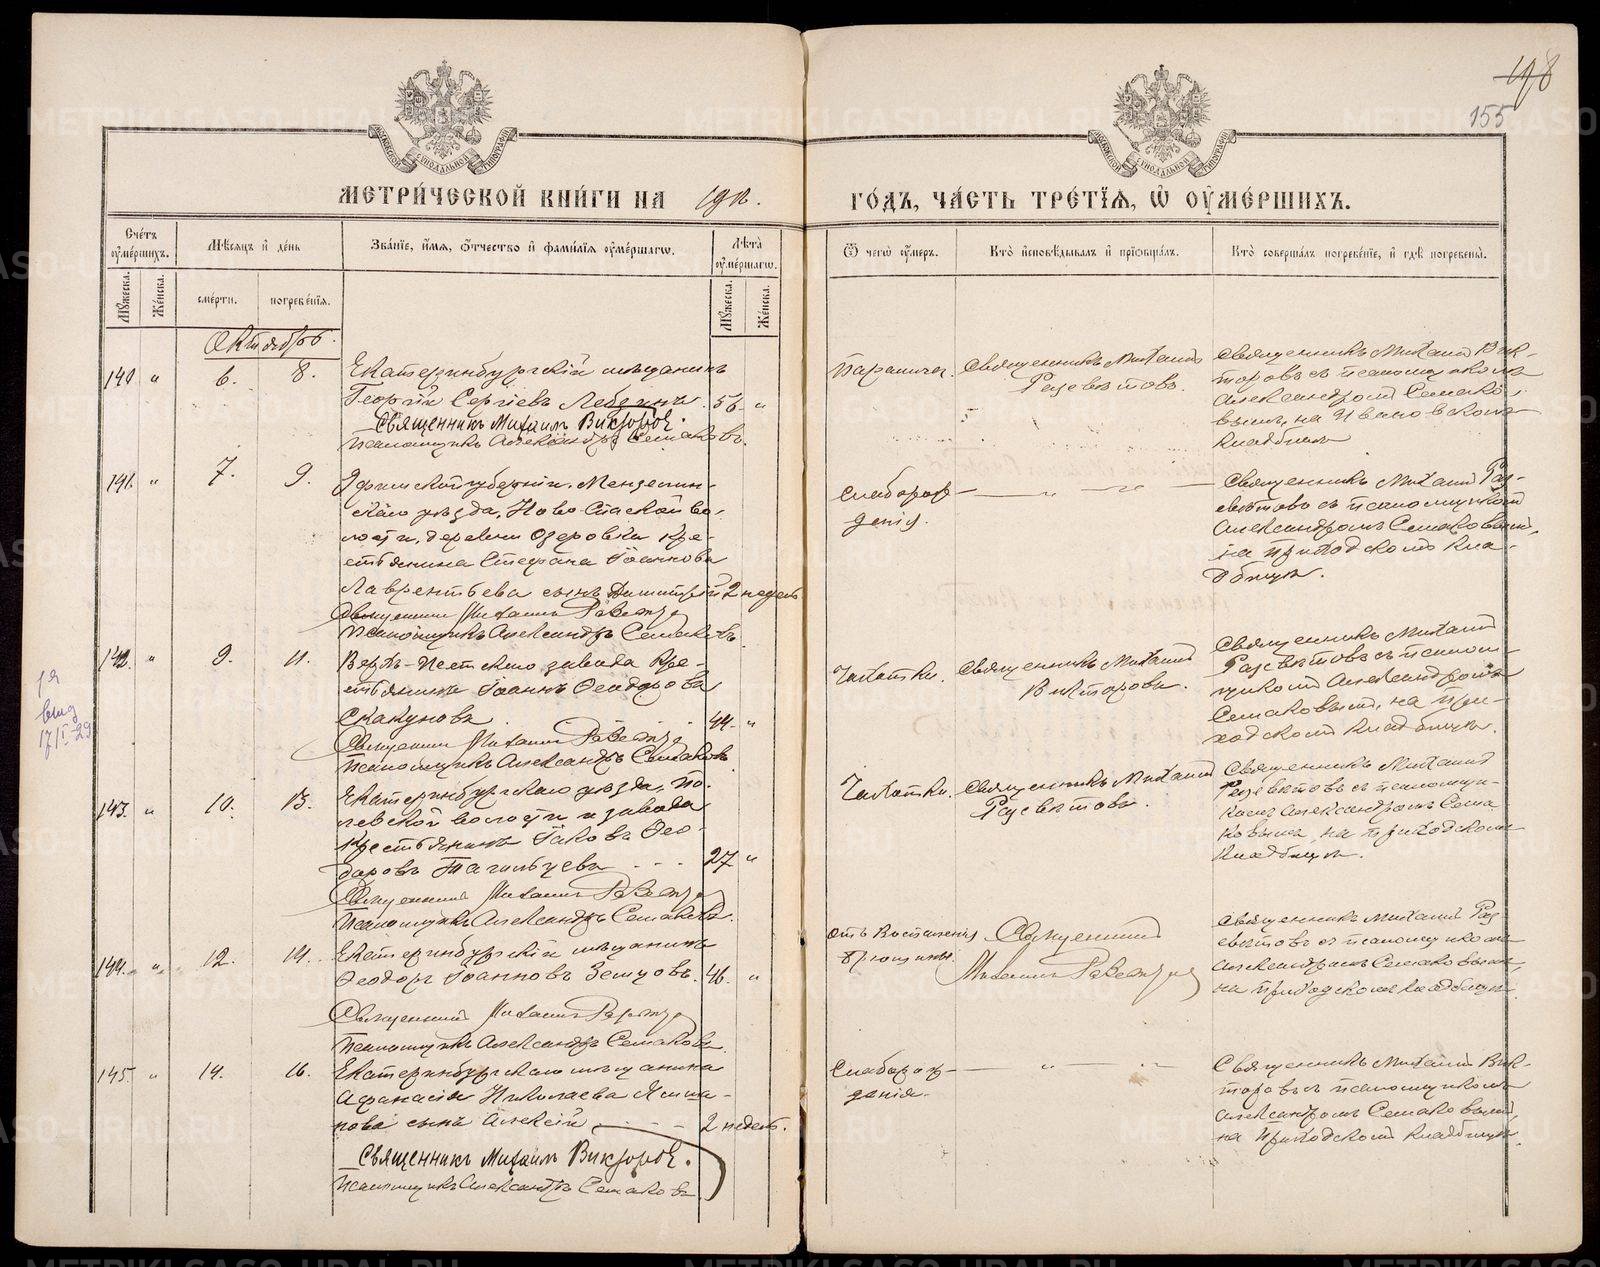 198
155
МЕТРИ́ЧЕСКОЙ КНИ́ГИ НА 191 .
ГО́ДЪ, ЧА́СТЬ ТРЕ́ТЇѦ, Ѡ ОУ҆МЕ́РШИХЪ.
Сче́тъ оу҆ме́ршихъ.
Мѣ́сѧцъ и҆ де́нь
Зва́нїе, и҆́мѧ, ѻ҆́тчество и҆ фами́лїѧ оу҆ме́ршагѡ.
Лѣ́та оу҆ме́ршагѡ.
Ѿ чегѡ̀ оу҆́меръ.
Кто̀ и҆сповѣ́дывалъ и҆ прїѡбща́лъ.
Кто̀ соверша́лъ погребе́нїе, и҆ гдѣ̀ погребены̀.
Му́жеска.
Же́нска.
сме́рти.
погребе́нїѧ.
Му́жеска.
Же́нска.
Октябрь.
140 " 6. 8.
Екатеринбургскій мѣщанинъ
Георгій Сергіевъ Лебедкинъ 56 "
Священникъ Михаилъ Викторовъ.
Псаломщикъ Александръ Семаковъ.
Параличъ.
Священникъ Михаилъ
Разсвѣтовъ.
Священникъ Михаилъ Вик-
торовъ съ псаломщикомъ
Александромъ Семако-
вымъ, на Ивановскомъ
кладбищѣ
141. " 7. 9.
Уфимской губерніи, Мензелин-
скаго уѣзда, Ново-Спаской во-
лости, деревни Озеровки кре-
стьянина Стефана Іоаннова
Лаврентьева сынъ Димитрій 2 недѣль
Священникъ Михаилъ Разсвѣтовъ
Псаломщикъ Александръ Семаковъ.
Слаборож-
денія.
Священникъ Михаилъ Раз-
свѣтовъ съ псаломщикомъ
Александромъ Семаковымъ,
на приходскомъ кла-
дбищѣ.
142. " 9. 11.
Верхъ-Исетскаго завода кре-
стьянинъ Іоаннъ Ѳеодоровъ
Скакуновъ 44. "
Священникъ Михаилъ Разсвѣтовъ
Псаломщикъ Александръ Семаковъ
Чахотки.
Священникъ Михаилъ
Викторовъ.
Священникъ Михаилъ
Разсвѣтовъ съ псалом-
щикомъ Александромъ
Семаковымъ, на при-
ходскомъ кладбищѣ.
143. " 10. 13.
Екатеринбургскаго уѣзда, По-
левской волости и завода
крестьянинъ Іаковъ Ѳео-
доровъ Тагильцевъ 27 "
Священникъ Михаилъ Разсвѣтовъ
Псаломщикъ Александръ Семаковъ.
Чахотки.
Священникъ Михаилъ
Разсвѣтовъ.
Священникъ Михаилъ
Разсвѣтовъ съ псаломщи-
комъ Александромъ Сема-
ковымъ, на приходскомъ
кладбищѣ.
144. " 12. 14.
Екатеринбургскій мѣщанинъ
Ѳеодоръ Іоанновъ Земцовъ. 46. "
Священникъ Михаилъ Разсвѣтовъ
Псаломщикъ Александръ Семаковъ.
Отъ воспаленія
брюшины.
Священникъ
Михаилъ Разсвѣтовъ
Священникъ Михаилъ Раз-
свѣтовъ съ псаломщикомъ
Александромъ Семаковымъ,
на приходскомъ кладбищѣ.
145. " 14. 16.
Екатеринбургскаго мѣщанина
Аѳанасія Николаева
сынъ Алексій 2 недѣль.
Священникъ Михаилъ Викторовъ.
Псаломщикъ Александръ Семаковъ
Слаборож-
денія.
Священникъ Михаилъ Вик-
торовъ съ псаломщикомъ
Александромъ Семаковымъ,
на приходскомъ кладбищѣ.